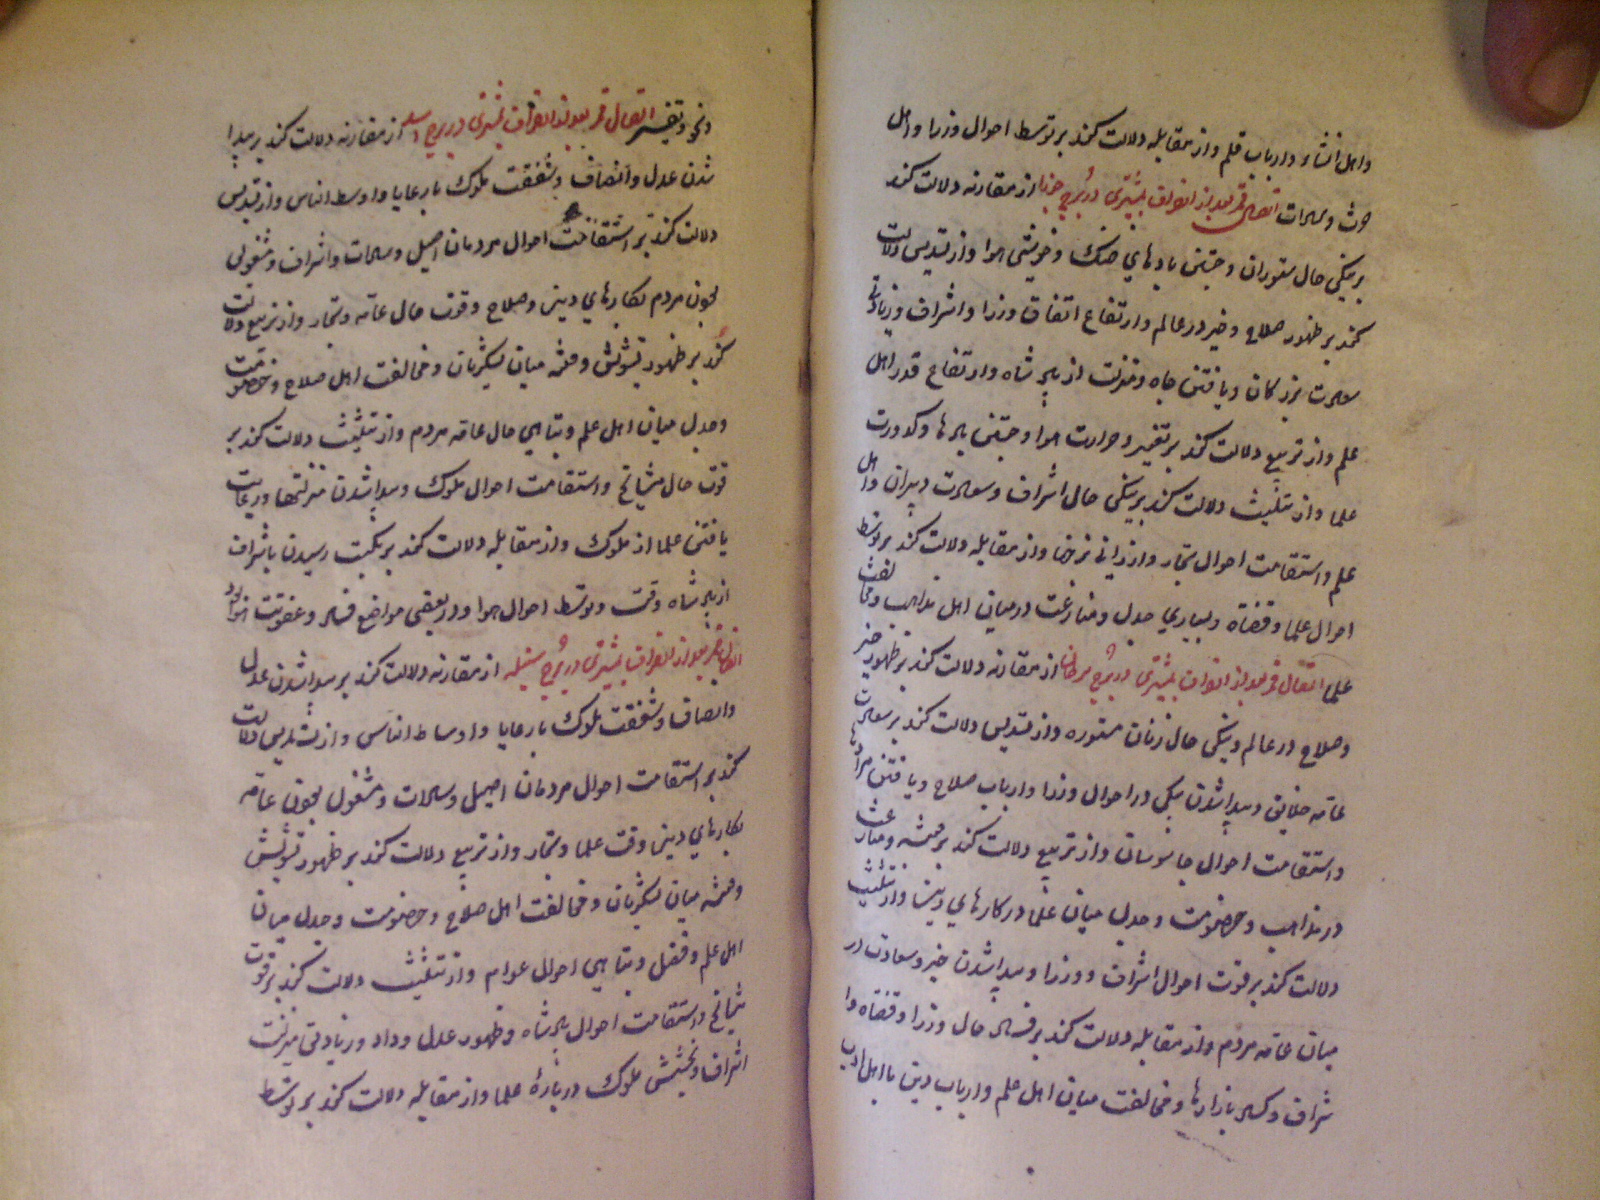 واهل انشاء وارباب قلم واز مقابله دلالت کند بر توسط احوال وزرا واهل
وسادات اتصال قمر بعد از انصراف بمشتری در برج جوزا از مقارنه دلالت کند
بر نیکی حال ستوران وجستن بادهای خنک وخوشی هوا واز تسدیس دلالت
کند بر ظهور صلاح وخیر در عالم وارتفاع اتفاق وزرا واشراف وزیادتی
سعادت بزرکان ویافتن جاه ومنزلت از پادشاه وارتفاع قدر اهل
علم واز تربیع دلالت کند بر تغییر وحرارت هوا وجستن بادها وکدورت
علما واز تثلیث دلالت کند بر نیکی حال اشراف وسعادت دبیران واهل
علم واستقامت احوال تجار وارزانی نرخها واز مقابله دلالت کند بر توسط
احوال علما وقضاة وبسیاری جدل ومنازعت درمیان اهل مذاهب ومخالفت
علما اتصال قمر بعد از انصراف بمشتری در برج سرطان از مقارنه دلالت کند بر ظهور خیر
وصلاح در عالم ونیکی حال زنان مستوره واز تسدیس دلالت کند بر سعادت
عامه خلایق وپیدا شدن نیکی در احوال وزرا وارباب صلاح ویافتن مرادها
واستقامت احوال جاسوسان واز تربیع دلالت کند بر فتنه ومنازعت
در مذاهب وخصومت وجدل میان علما در کارهای دینی واز تثلیث
دلالت کند بر قوت احوال اشراف ووزرا وپیدا شدن خیر وسعادت در
میان عامه مردم واز مقابله دلالت کند بر فساد حال وزرا وقضاه وا
شراف وکساد بازارها ومخالفت میان اهل علم وارباب دین با اهل ادب
اتصال قمر بعد از انصراف بمشتری در برج اسد از مقارنه دلالت کند بر پیدا
شدن عدل وانصاف وشفقت ملوک بارعایا واوسط الناس واز تسدیس
دلالت کند بر استقامت احوال مردمان اصیل وسادات واشراف ومشغولی
بجون مردم بکارهای دینی وصلاح وقوت حال عامه وتجار واز تربیع دلالت
کند بر ظهور تشویش وفتنه میان لشکریان ومخالفت اهل صلاح وخصومت
وجدل میان اهل علم وتباهی حال عامه مردم واز تثلیث دلالت کند بر
قوت حال مشایخ واستقامت احوال ملوک وپیدا شدن منزلتها ورعایت
یافتن علما از ملوک واز مقابله دلالت کند بر نکبت رسیدن باشراف
از پادشاه وقت وتوسط احوال هوا ودر بعضی مواضع فساد وعفونت هوا بود
اتصال قمر بعد از انصراف بمشتری در برج سنبله از مقارنه دلالت کند بر پیدا شدن عدل
وانصاف وشفقت ملوک بارعایا واوساط الناس واز تسدیس دلالت
کند بر استقامت احوال مردمان اصیل وسادات ومشغول بجون عامه
بکارهای دینی وقت علما وتجار واز تربیع دلالت کند بر ظهور تشویش
وفتنه میان لشکریان ومخالفت اهل صلاح وخصومت وجدل میان
اهل علم وفضل وتباهی احوال عوام واز تثلیث دلالت کند بر قوت
مشایخ واستقامت احوال پادشاه وظهور عدل وداد وزیادتی منزلت
اشراف وبخشش ملوک درباره علما واز مقابله دلالت کند بر توسط